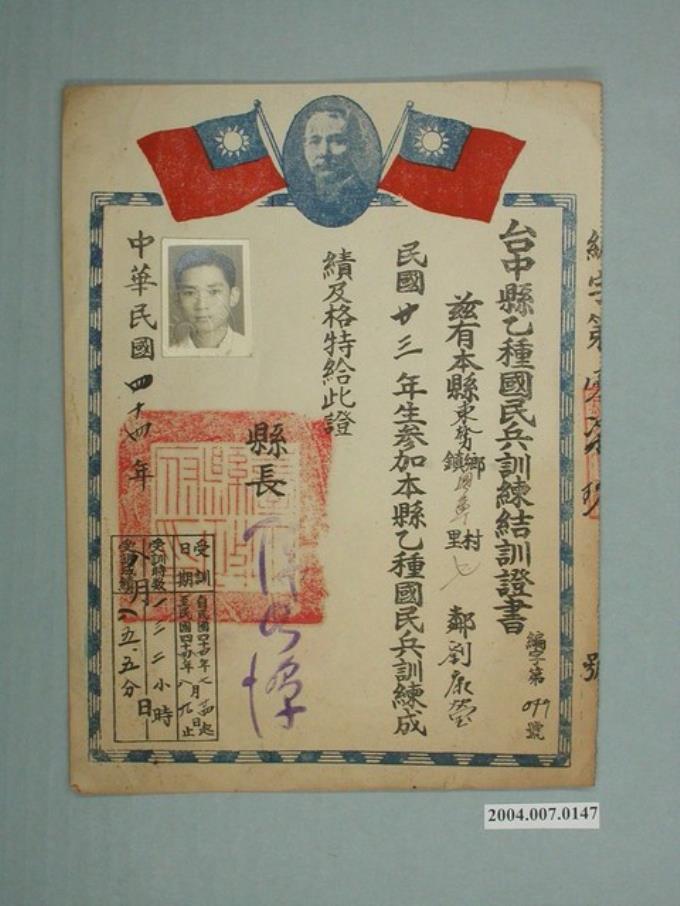 台中縣乙種國民兵訓練結訓證書
編字第 099 號
茲有本縣東勢鄉鎮 村里 七 鄰劉康
民國廿三年生參加本縣乙種國民兵訓練成
績及格特給此證
縣長
中華民國四十四年八月 日
受訓日期
自民國四十四年七月 日起
至民國四十四年八月九日止
受訓時數 一三二小時
受訓成績 八五.五分
字第
號
2004.007.0147